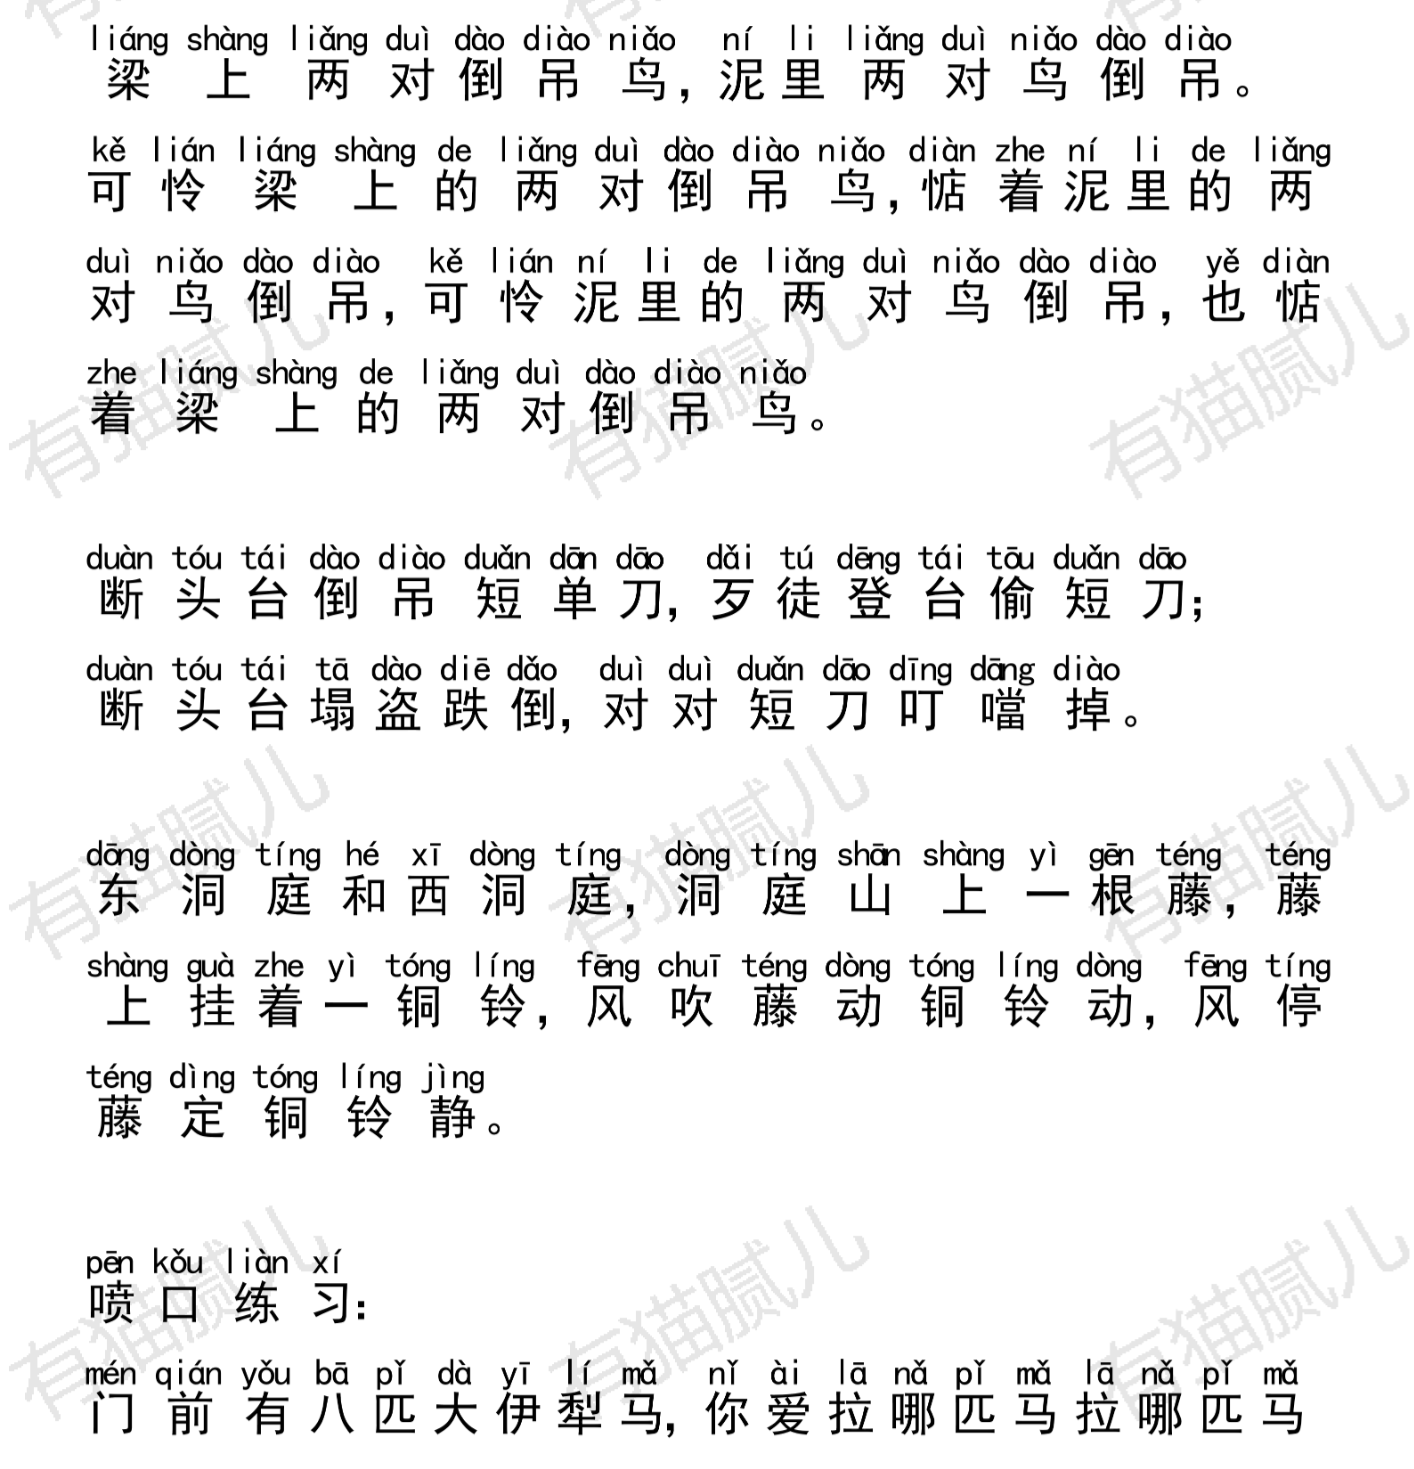 liáng shàng liǎng duì dào diào niǎo ní li liǎng duì niǎo dào diào
梁上两对倒吊鸟,泥里两对鸟倒吊。
kě lián liáng shàng de liǎng duì dào diào niǎo diàn zhe ní li de liǎng
可怜梁上的两对倒吊鸟,惦着泥里的两
duì niǎo dào diào kě lián ní li de liǎng duì niǎo dào diào yě diàn
对鸟倒吊,可怜泥里的两对鸟倒吊,也惦
zhe liáng shàng de liǎng duì dào diào niǎo
着梁上的两对倒吊鸟。
duàn tóu tái dào diào duǎn dān dāo dǎi tú dēng tái tōu duǎn dāo
断头台倒吊短单刀,歹徒登台偷短刀;
duàn tóu tái tā dào diē dǎo duì duì duǎn dāo dīng dāng diào
断头台塌盗跌倒,对对短刀叮噹掉。
dōng dòng tíng hé xī dòng tíng dòng tíng shān shàng yì gēn téng téng
东洞庭和西洞庭,洞庭山上一根藤,藤
shàng guà zhe yì tóng líng fēng chuī téng dòng tóng líng dòng fēng tíng
上挂着一铜铃,风吹藤动铜铃动,风停
téng dìng tóng líng jìng
藤定铜铃静。
pēn kǒu liàn xí
喷口练习:
mén qián yǒu bā pǐ dà yī lí mǎ nǐ ài lā nǎ pǐ mǎ lā nǎ pǐ mǎ
门前有八匹大伊犁马,你爱拉哪匹马拉哪匹马
有猫腻儿
有猫腻儿
有猫腻儿
有猫腻儿
有猫腻儿
有猫腻儿
有猫腻儿
有猫腻儿
有猫腻儿